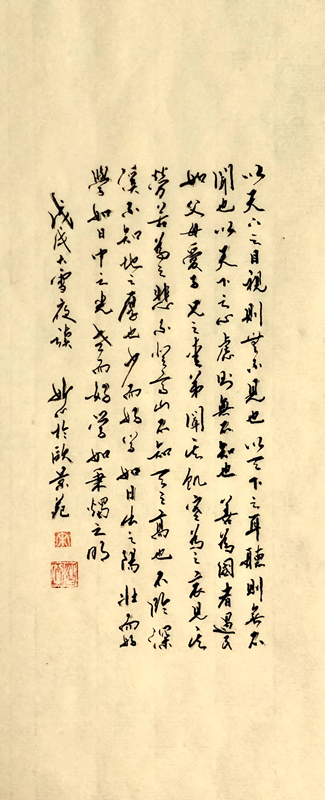 以天下之目視則無不見也以天下之耳聽則無不
聞也以天下之心慮則無不知也 善為國者遇民
如父母愛子兄之愛弟聞其飢寒為之哀見其
勞苦為之悲不登高山不知天之高也不臨深
溪不知地之厚也少而好學如日出之陽壯而好
學如日中之光老而好學如秉燭之明
戊戌大雪夜讀 於歐景苑